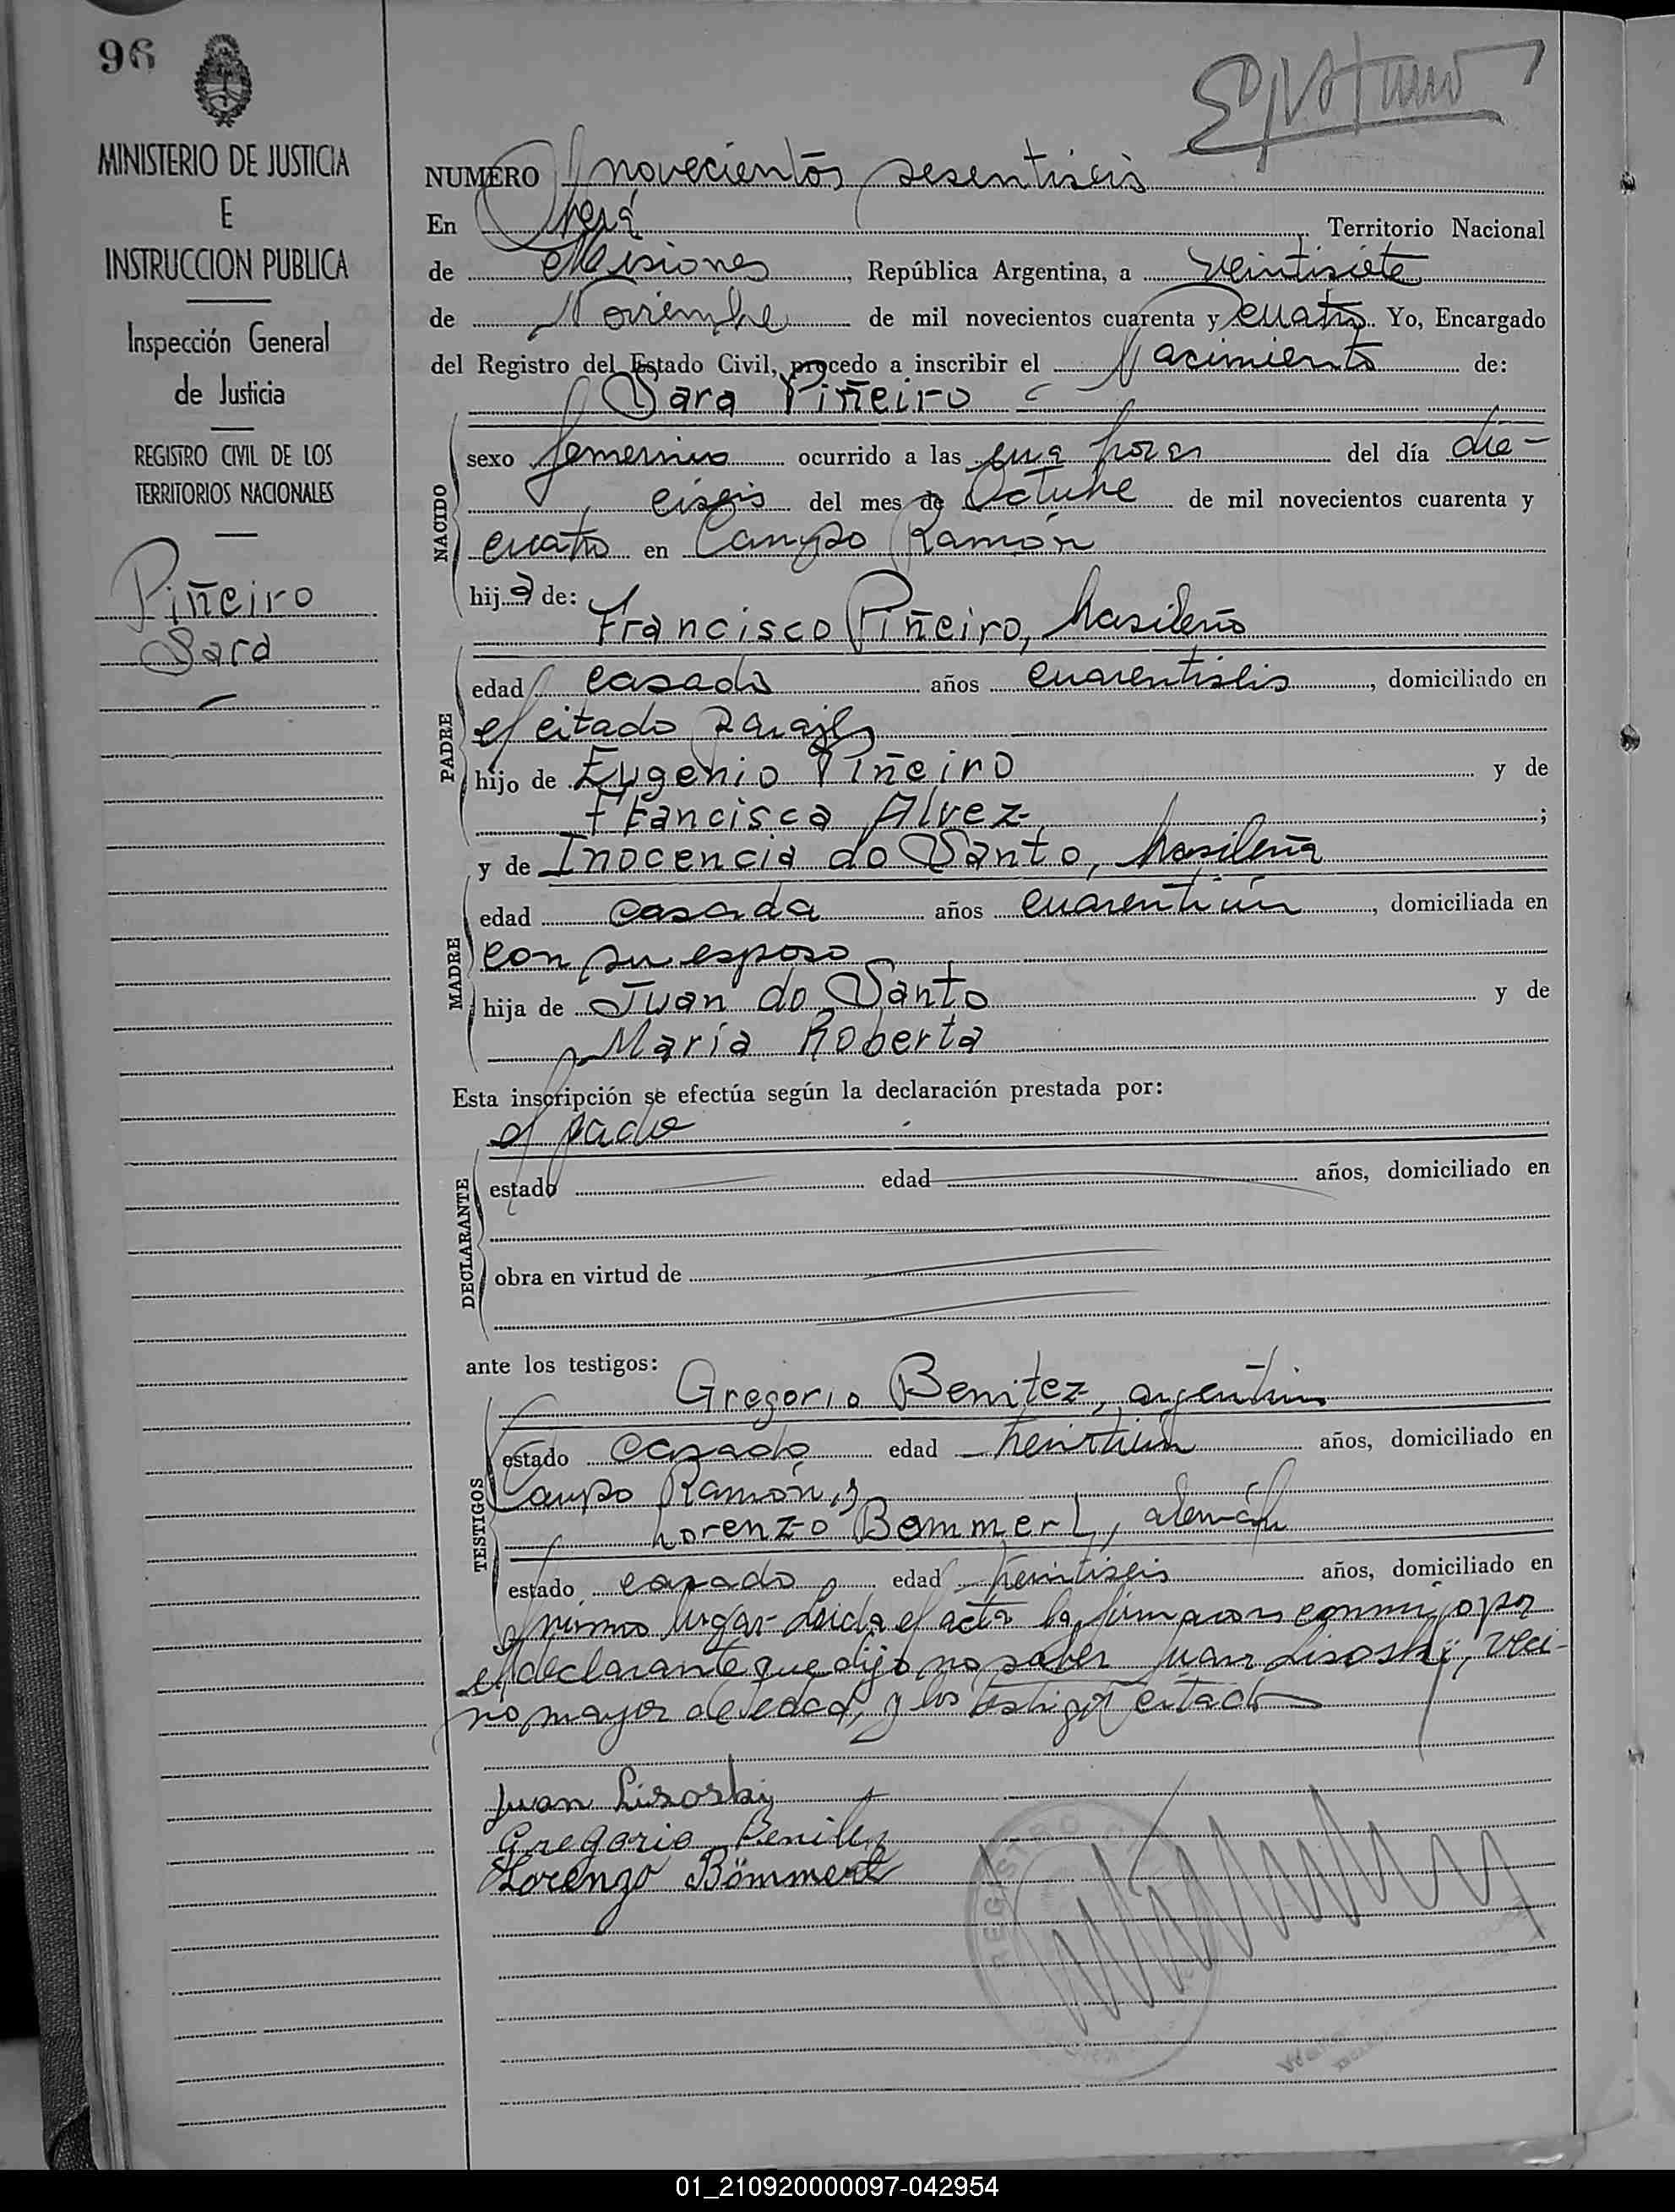 96
MINISTERIO DE JUSTICIA
E
INSTRUCCION PUBLICA
Inspección General
de Justicia
REGISTRO CIVIL DE LOS
TERRITORIOS NACIONALES
Piñeiro
Sara
NUMERO novecientos sesentiseis
En Oberá Territorio Nacional
de Misiones, República Argentina, a veintisiete
de Noviembre de mil novecientos cuarenta y cuatro. Yo, Encargado
del Registro del Estado Civil, procedo a inscribir el Nacimiento de:
Sara Piñeiro
NACIDO
sexo femenino ocurrido a las una horas del día die-
ciseis del mes de Octubre de mil novecientos cuarenta y
cuatro en Campo Ramón
hija de:
Francisco Piñeiro, brasileño
PADRE
edad casado años cuarentiseis, domiciliado en
el citado paraje
hijo de Eugenio Piñeiro y de
Francisca Alvez ;
y de Inocencia do Santo, brasileña
MADRE
edad casada años cuarentiún, domiciliada en
con su esposo
hija de Juan do Santo y de
María Roberta
Esta inscripción se efectúa según la declaración prestada por:
el padre
DECLARANTE
estado edad años, domiciliado en
obra en virtud de
ante los testigos:
Gregorio Benitez, argentino
TESTIGOS
estado casado edad treintiún años, domiciliado en
Campo Ramón, y
Lorenzo Bömmert, alemán
estado casado edad treintiseis años, domiciliado en
el mismo lugar. Leída el acta la firmaron conmigo por
el declarante que dijo no saber Juan Lisoski, veci-
no, mayor de edad, y los testigos citados
Juan Lisoski
Gregorio Benitez
Lorenzo Bömmert
REGISTRO
01_210920000097-042954